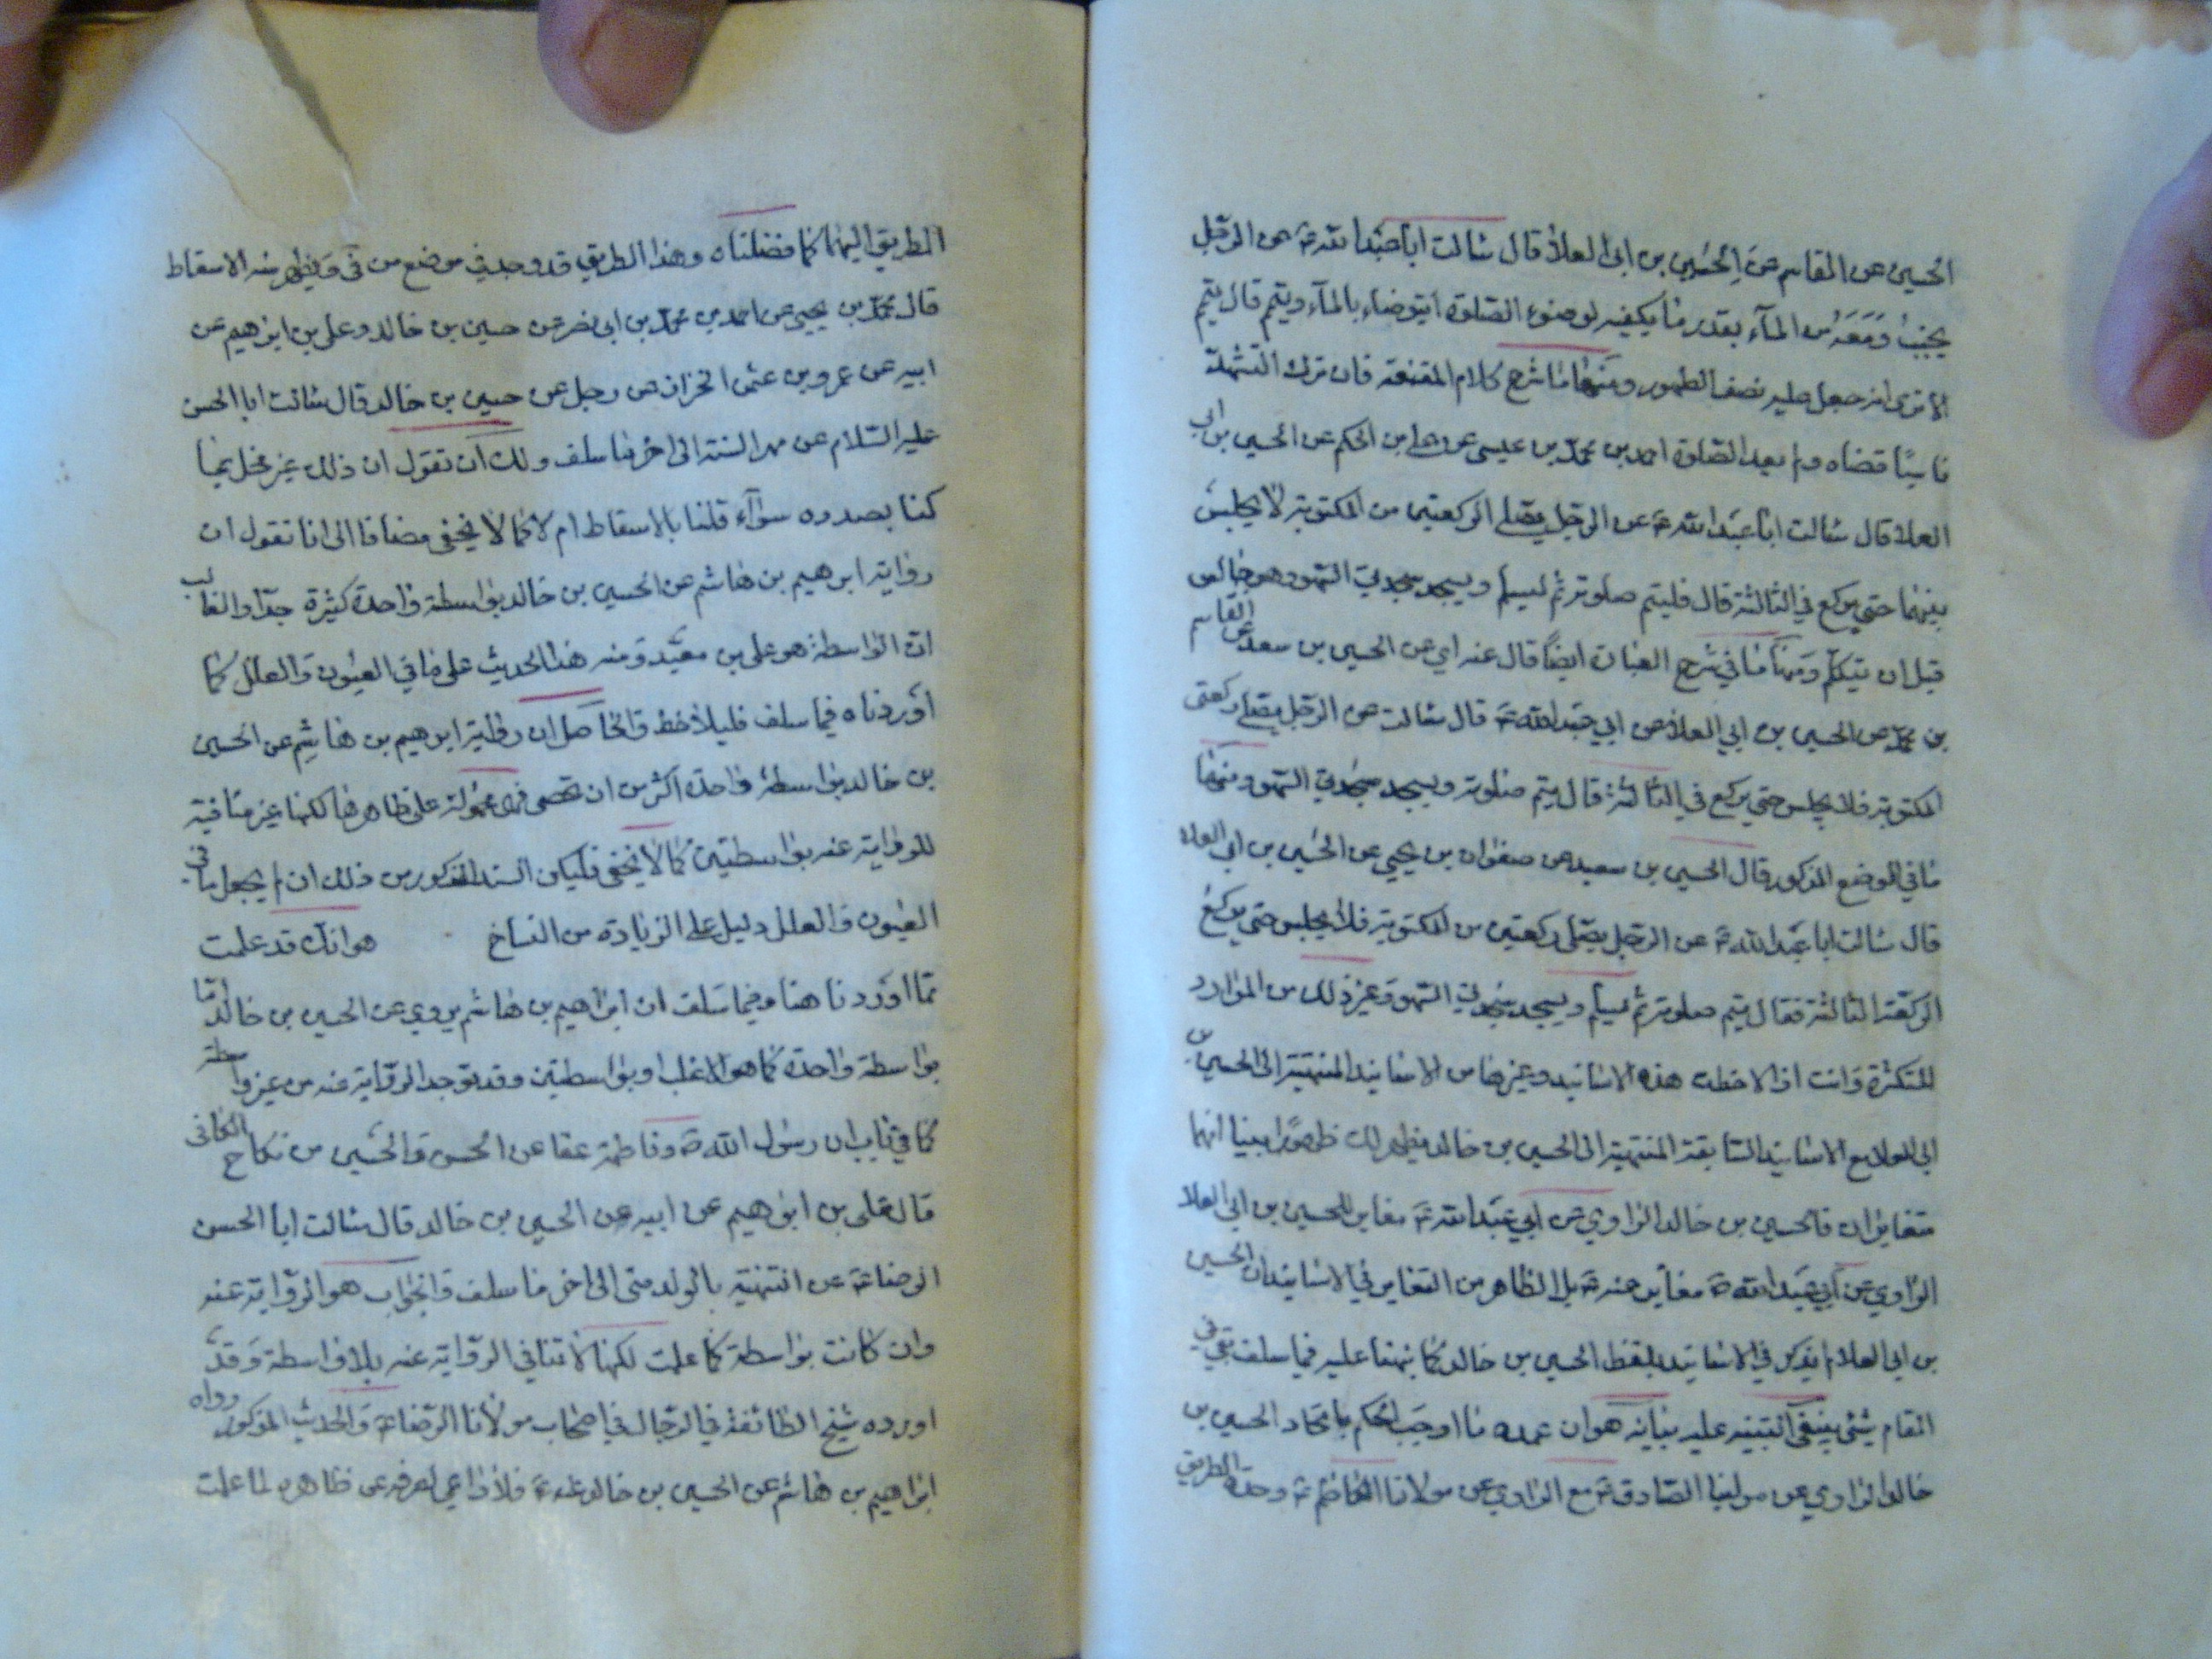 الحسين عن القاسم عن الحسين بن ابي العلا قال سالت ابا عبدا لله ع عن الرجل
يجنب ومعه من المآء بقدر ما يكفيه لوضوء الصلوة ايتوضاء بالمآء ويتيم قال يتيم
الا ترى انه جعل عليه نصف الطهور ومنها ما شرح كلام المقنعة فان ترك التشهد
ناسيًا قضاه ولم يعيد الصلوة احمد بن محمد بن عيسى عن علي بن الحكم عن الحسين بن ابي
العلا قال سالت ابا عبدالله ع عن الرجل يصلي الركعتين من المكتوبة لا يجلس
بينهما حتى يركع في الثالثة قال فليتم صلوته ثم ليسلم ويسجد سجدتي السهو وهو جالس
قبل ان يتكلم ومنها ما في شرح العبارة ايضًا قال عنه اي عن الحسين بن سعيد عن القاسم
بن محمد عن الحسين بن ابي العلا عن ابي عبدالله ع قال سالت عن الرجل يصلي ركعتى
المكتوبة فلا يجلس حتى يركع في الثالثة قال يتم صلوته ويسجد سجدتي السهو ومنها
ما في الموضع المذكور قال الحسين بن سعيد عن صفوان بن يحيي عن الحسين بن ابي العلا
قال سالت ابا عبدالله ع عن الرجل يصلي ركعتين من المكتوبة فلا يجلس حتى يركع
الركعة الثالثة فقال يتم صلوته ثم يسلم ويسجد سجدتي السهو وغير ذلك من الموارد
المتكثرة وانت اذا لاحظت هذه الاسانيد وغيرها من الاسانيد المنتهية الى الحسين بن
ابي العلا مع الاسانيد السابقة المنتهية الى الحسين بن خالد فيظهر لك ظهورًا بينا انهما
متغايران فالحسين بن خالد الراوي عن ابي عبدالله ع مغاير للحسين بن ابي العلا
الراوي عن ابي عبدالله ع مغاير عنه بل الظاهر من التغاير في الاسانيد ان الحسين
بن ابي العلا لم يذكر في الاسانيد بلفظ الحسين بن خالد كما نبهنا عليه فيما سلف بقي في
المقام شئ ينبغي التنبيه عليه بيانه هو ان عمده ما اوجب الحكم باتحاد الحسين بن
خالد الراوي عن مولينا الصادق ع مع الراوي عن مولانا الكاظم ع وحدة الطريق
الطريق اليهما كما فصلناه وهذا الطريق قد وجد في موضع من في يظهر منه الاسقاط
قال محمد بن يحيي عن احمد بن محمد بن ابي نصر عن حسين بن خالد وعلي بن ابرهيم عن
ابيه عن عمرو بن عثمن الخزاز عن رجل عن حسين بن خالد قال سالت ابا الحسن
عليه السلام عن مهر السنة الى اخر ما سلف ولك ان تقول ان ذلك غير مخل بما
كنا بصدده سوآء قلنا بالاسقاط ام لا كما لا يخفى مضافا الى انا نقول ان
رواية ابرهيم بن هاشم عن الحسين بن خالد بواسطة واحدة كثيرة جدا والغالب
ان الواسطة هو علي بن معبد ومنه هذا الحديث على ما في العيون والعلل كما
اوردناه فيما سلف فليلاحظ والحاصل ان رواية ابرهيم بن هاشم عن الحسين
بن خالد بواسطة واحدة اكثر من ان تحصى فهي محمولة على ظاهرها لكنها غير منافية
للرواية عنه بواسطتين كما لا يخفى فليكن السند المذكور من ذلك ان لم يجعل ما في
العيون والعلل دليل على الزيادة من النساخ هو انك قد علمت
مما اوردنا هنا وفيما سلف ان ابراهيم بن هاشم يروي عن الحسين بن خالد اما
بواسطة واحدة كما هو الاغلب او بواسطتين وقد يوجد الرواية عنه من غير واسطة
كما في باب ان رسول الله ص وفاطمة عقا عن الحسن والحسين من نكاح الكافى
قال علي بن ابرهيم عن ابيه عن الحسين بن خالد قال سالت ابا الحسن
الرضا ع عن التهنية بالولد متى الى اخر ما سلف والجواب هو الرواية عنه
وان كانت بواسطة كما علمت لكنها لا تنافي الرواية عنه بلا واسطة وقد
اورده شيخ الطائفة في الرجال في اصحاب مولانا الرضا ع والحديث المذكور رواه
ابراهيم بن هاشم عن الحسين بن خالد عنه ع فلا داعي لصرفه عن ظاهره لما علمت